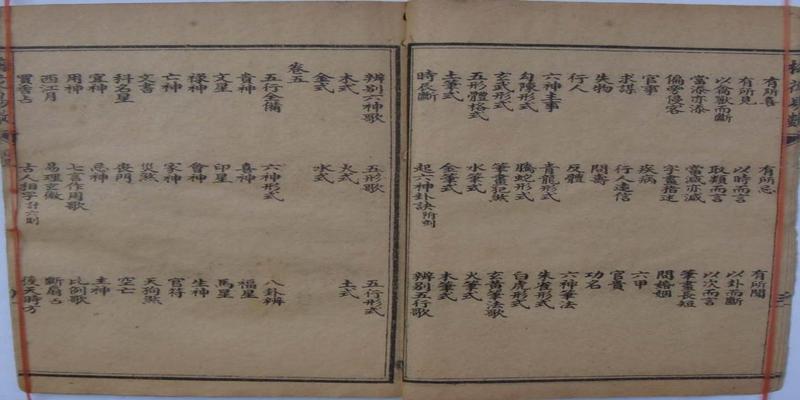 有所喜 有所忌 有所聞
有所見 以時而言 以卦而斷
以禽獸而斷 取類而言 以次而言
當添亦添 當減亦減 筆畫長短
偏旁侵客 字畫指迷 問婚姻
官事 疾病 六甲
求謀 行人遠信 官貴
失物 問壽 功名
行人 反體 六神筆法
六神主事 青龍形式 朱雀形式
勾陳形式 螣蛇形式 白虎形式
玄武形式 筆畫犯煞 玄黃筆法歌
五形體格式 水筆式 火筆式
土筆式 金筆式 木筆式
時辰斷 起六神卦訣附例 辨別五行歌
辨別六神歌 五形歌 五行形式
木式 火式 土式
金式 水式
卷五
五行全備 六神形式 八卦辨
貴神 喜神 福星
文星 印星 馬星
祿神 會神 生神
亡神 家神 官符
文書 災煞 天狗煞
科名星 喪門 空亡
宜神 忌神 主神
用神 七言作用歌 比例歌
西江月 易理玄微 斷扇占
買香占 古人相字計六則 後天時方